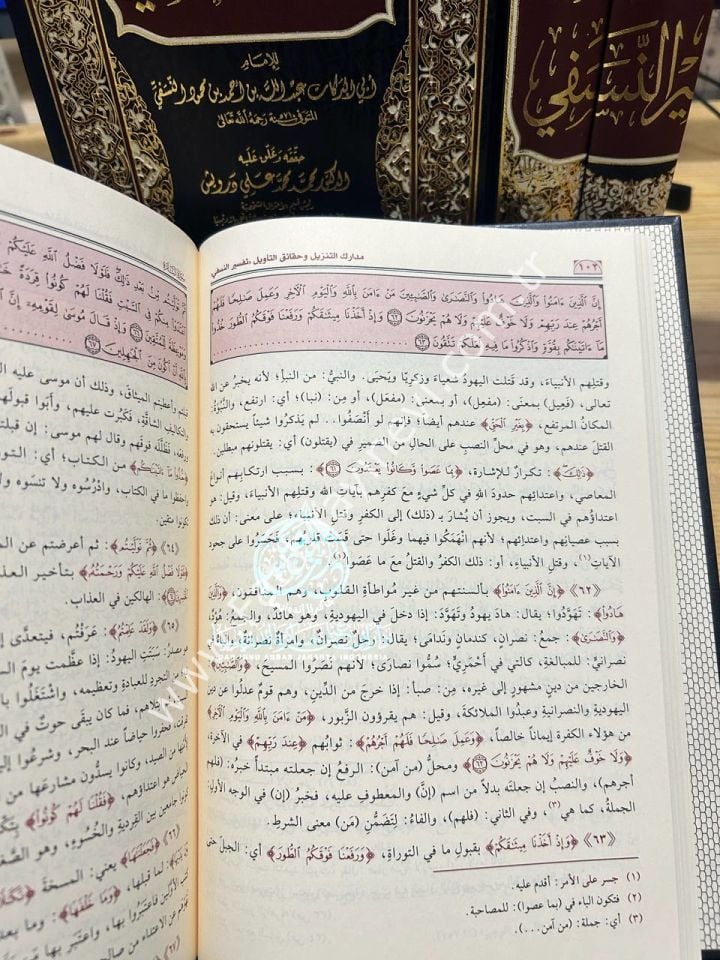 للإمام
أبي البركات عبد الله بن أحمد بن محمود النسفي
المتوفى ٧١٠ سنة رحمه الله تعالى
حققه وعلق عليه
الدكتور محمد محمد علي درويش
تفسير النسفي
١٠٢
مدارك التنزيل وحقائق التأويل «تفسير النسفي»
إِنَّ الَّذِينَ ءَامَنُوا وَالَّذِينَ هَادُوا وَالنَّصَارَى وَالصَّابِئِينَ مَنْ ءَامَنَ بِاللَّهِ وَالْيَوْمِ الْآخِرِ وَعَمِلَ صَالِحًا فَلَهُمْ
أَجْرُهُمْ عِندَ رَبِّهِمْ وَلَا خَوْفٌ عَلَيْهِمْ وَلَا هُمْ يَحْزَنُونَ ﴿٦٢﴾ وَإِذْ أَخَذْنَا مِيثَاقَكُمْ وَرَفَعْنَا فَوْقَكُمُ الطُّورَ خُذُوا
مَا ءَاتَيْنَاكُم بِقُوَّةٍ وَاذْكُرُوا مَا فِيهِ لَعَلَّكُمْ تَتَّقُونَ ﴿٦٣﴾
وقتلهم الأنبياءَ، وقد قَتلت اليهودُ شَعياءَ وزكريَّا ويَحيَى. والنبيُّ: من النبأ؛ لأنه يخبرُ عن الله
تعالى، (فَعِيل) بمعنَى: (مفعِل)، أو بمعنى: (مفعَل)، أو مِن: (نبا)؛ أي: ارتفع، والنَّبْوَةُ:
المكانُ المرتفع، ﴿بِغَيْرِ الْحَقِّ﴾ عندهم أيضاً؛ فإنهم لو أَنْصَفُوا.. لم يَذكروا شيئاً يستحقون به
القتلَ عندهم، وهو في محلِّ النصبِ على الحالِ من الضميرِ في (يقتلون) أي: يقتلونهم مبطلين.
﴿ذَلِكَ﴾: تكرارٌ للإشارة، ﴿بِمَا عَصَوا وَّكَانُوا يَعْتَدُونَ ﴿٦١﴾﴾: بسببِ ارتكابِهم أنواعَ
المعاصي، واعتدائِهم حدودَ اللهِ في كلِّ شيءٍ معَ كفرِهم بآياتِ اللهِ وقتلِهم الأنبياءَ، وقيل: هو
اعتداؤُهم في السبت، ويجوز أن يُشارَ بـ (ذلك) إلى الكفرِ وقتلِ الأنبياءِ؛ على معنى: أن ذلك
بسببِ عصيانِهم واعتدائِهم؛ لأنهم انهمكُوا فيهما وغَلَوا حتى قَسَت قلوبُهم، فجَسَروا على جحودِ
الآياتِ(١)، وقتلِ الأنبياءِ، أو: ذلك الكفرُ والقتلُ معَ ما عَصَوا(٢).
﴿٦٢﴾ ﴿إِنَّ الَّذِينَ ءَامَنُوا﴾ بألسنتِهم من غيرِ مُواطَأةِ القلوبِ، وهم المنافقون، ﴿وَالَّذِينَ
هَادُوا﴾: تهوَّدُوا؛ يقال: هادَ يهودُ وتهوَّدَ: إذا دخلَ في اليهوديةِ، وهو هائدٌ، والجمعُ: هُوْدٌ،
﴿وَالنَّصَارَى﴾: جمعُ: نصرانٍ، كندمانٍ وندامَى؛ يقال: رجلٌ نصرانٌ، وامرأةٌ نصرانةٌ، والياءُ في
نصرانيٍّ: للمبالغةِ، كالتي في أَحْمَرِيٍّ؛ سُمُّوا نصارى؛ لأنهم نَصَرُوا المسيحَ، ﴿وَالصَّابِئِينَ﴾:
الخارجين من دينٍ مشهورٍ إلى غيرِه، مِن: صبأ: إذا خرجَ من الدِّين، وهم قومٌ عدلُوا عن دينِ
اليهوديةِ والنصرانيةِ وعبدُوا الملائكةَ، وقيل: هم يقرؤون الزَّبور، ﴿مَنْ ءَامَنَ بِاللَّهِ وَالْيَوْمِ الْآخِرِ﴾
من هؤلاءِ الكفرةِ إيماناً خالصاً، ﴿وَعَمِلَ صَالِحًا فَلَهُمْ أَجْرُهُمْ﴾: ثوابُهم ﴿عِندَ رَبِّهِمْ﴾ في الآخرة،
﴿وَلَا خَوْفٌ عَلَيْهِمْ وَلَا هُمْ يَحْزَنُونَ ﴿٦٢﴾﴾ ومحلُّ (من آمن): الرفعُ إن جعلته مبتدأً خبرُه: (فلهم
أجرهم)، والنصبُ إن جعلتَه بدلاً من اسم (إنَّ) والمعطوفِ عليه، فخبرُ (إن) في الوجهِ الأولِ:
الجملةُ، كما هي(٣)، وفي الثاني: (فلهم)، والفاءُ: لِتضمُّنِ (مَن) معنى الشرطِ.
﴿٦٣﴾ ﴿وَإِذْ أَخَذْنَا مِيثَاقَكُمْ﴾ بقبولِ ما في التوراةِ، ﴿وَرَفَعْنَا فَوْقَكُمُ الطُّورَ﴾ أي: الجبلَ حتى
(١) جسر على الأمر: أقدم عليه.
(٢) فتكون الباء في (بما عصوا): للمصاحبة.
(٣) أي: جملة: (من آمن...).
ثُمَّ تَوَلَّيْتُم مِّن بَعْدِ ذَلِكَ فَلَوْلَا فَضْلُ اللَّهِ عَلَيْكُمْ
مِنكُمْ فِي السَّبْتِ فَقُلْنَا لَهُمْ كُونُوا قِرَدَةً
وَمَوْعِظَةً لِّلْمُتَّقِينَ ﴿٦٦﴾ وَإِذْ قَالَ مُوسَى لِقَوْمِهِ إِنَّ
أَنْ أَكُونَ مِنَ الْجَاهِلِينَ ﴿٦٧﴾
قبلتم وأعطيتم الميثاقَ، وذلك أن موسى عليه
والتكاليفِ الشاقَّةِ، فكَبُرت عليهم، وأَبَوا قبولَها
ورفعَه، فظلَّلَه فوقَهم وقال لهم موسى: إن قبلتم
﴿خُذُوا مَا ءَاتَيْنَاكُم﴾ من الكتاب؛ أي:
واحفظوا ما في الكتاب، وادْرُسُوه ولا تنسَوه ولا
تكونوا متقين.
﴿٦٤﴾ ﴿ثُمَّ تَوَلَّيْتُم﴾: ثم أعرضتم عن
﴿فَلَوْلَا فَضْلُ اللَّهِ عَلَيْكُمْ وَرَحْمَتُهُ﴾ بتأخيرِ
: الهالكين في العذاب.
﴿٦٥﴾ ﴿وَلَقَدْ عَلِمْتُمُ﴾: عَرَفْتُم، فيتعدَّى
سَبَتَتِ اليهودُ: إذا عظَّمت يومَ
التجردِ للعبادةِ وتعظيمِه، واشْتَغَلُوا
فما كان يبقَى حوتٌ في
فحفَرُوا حياضاً عند البحر، وشرعُوا
وكانوا يسدُّون مشارعَها من
هو اعتداؤهم، ﴿فَقُلْنَا لَهُمْ كُونُوا﴾
جامعين بين القِرديةِ والخُسوءِ، وهو
﴿٦٦﴾ ﴿فَجَعَلْنَاهَا﴾ يعني: المسخةَ
لما قبلَها، ﴿وَمَا خَلْفَهَا﴾: وما
www.
.com.tr